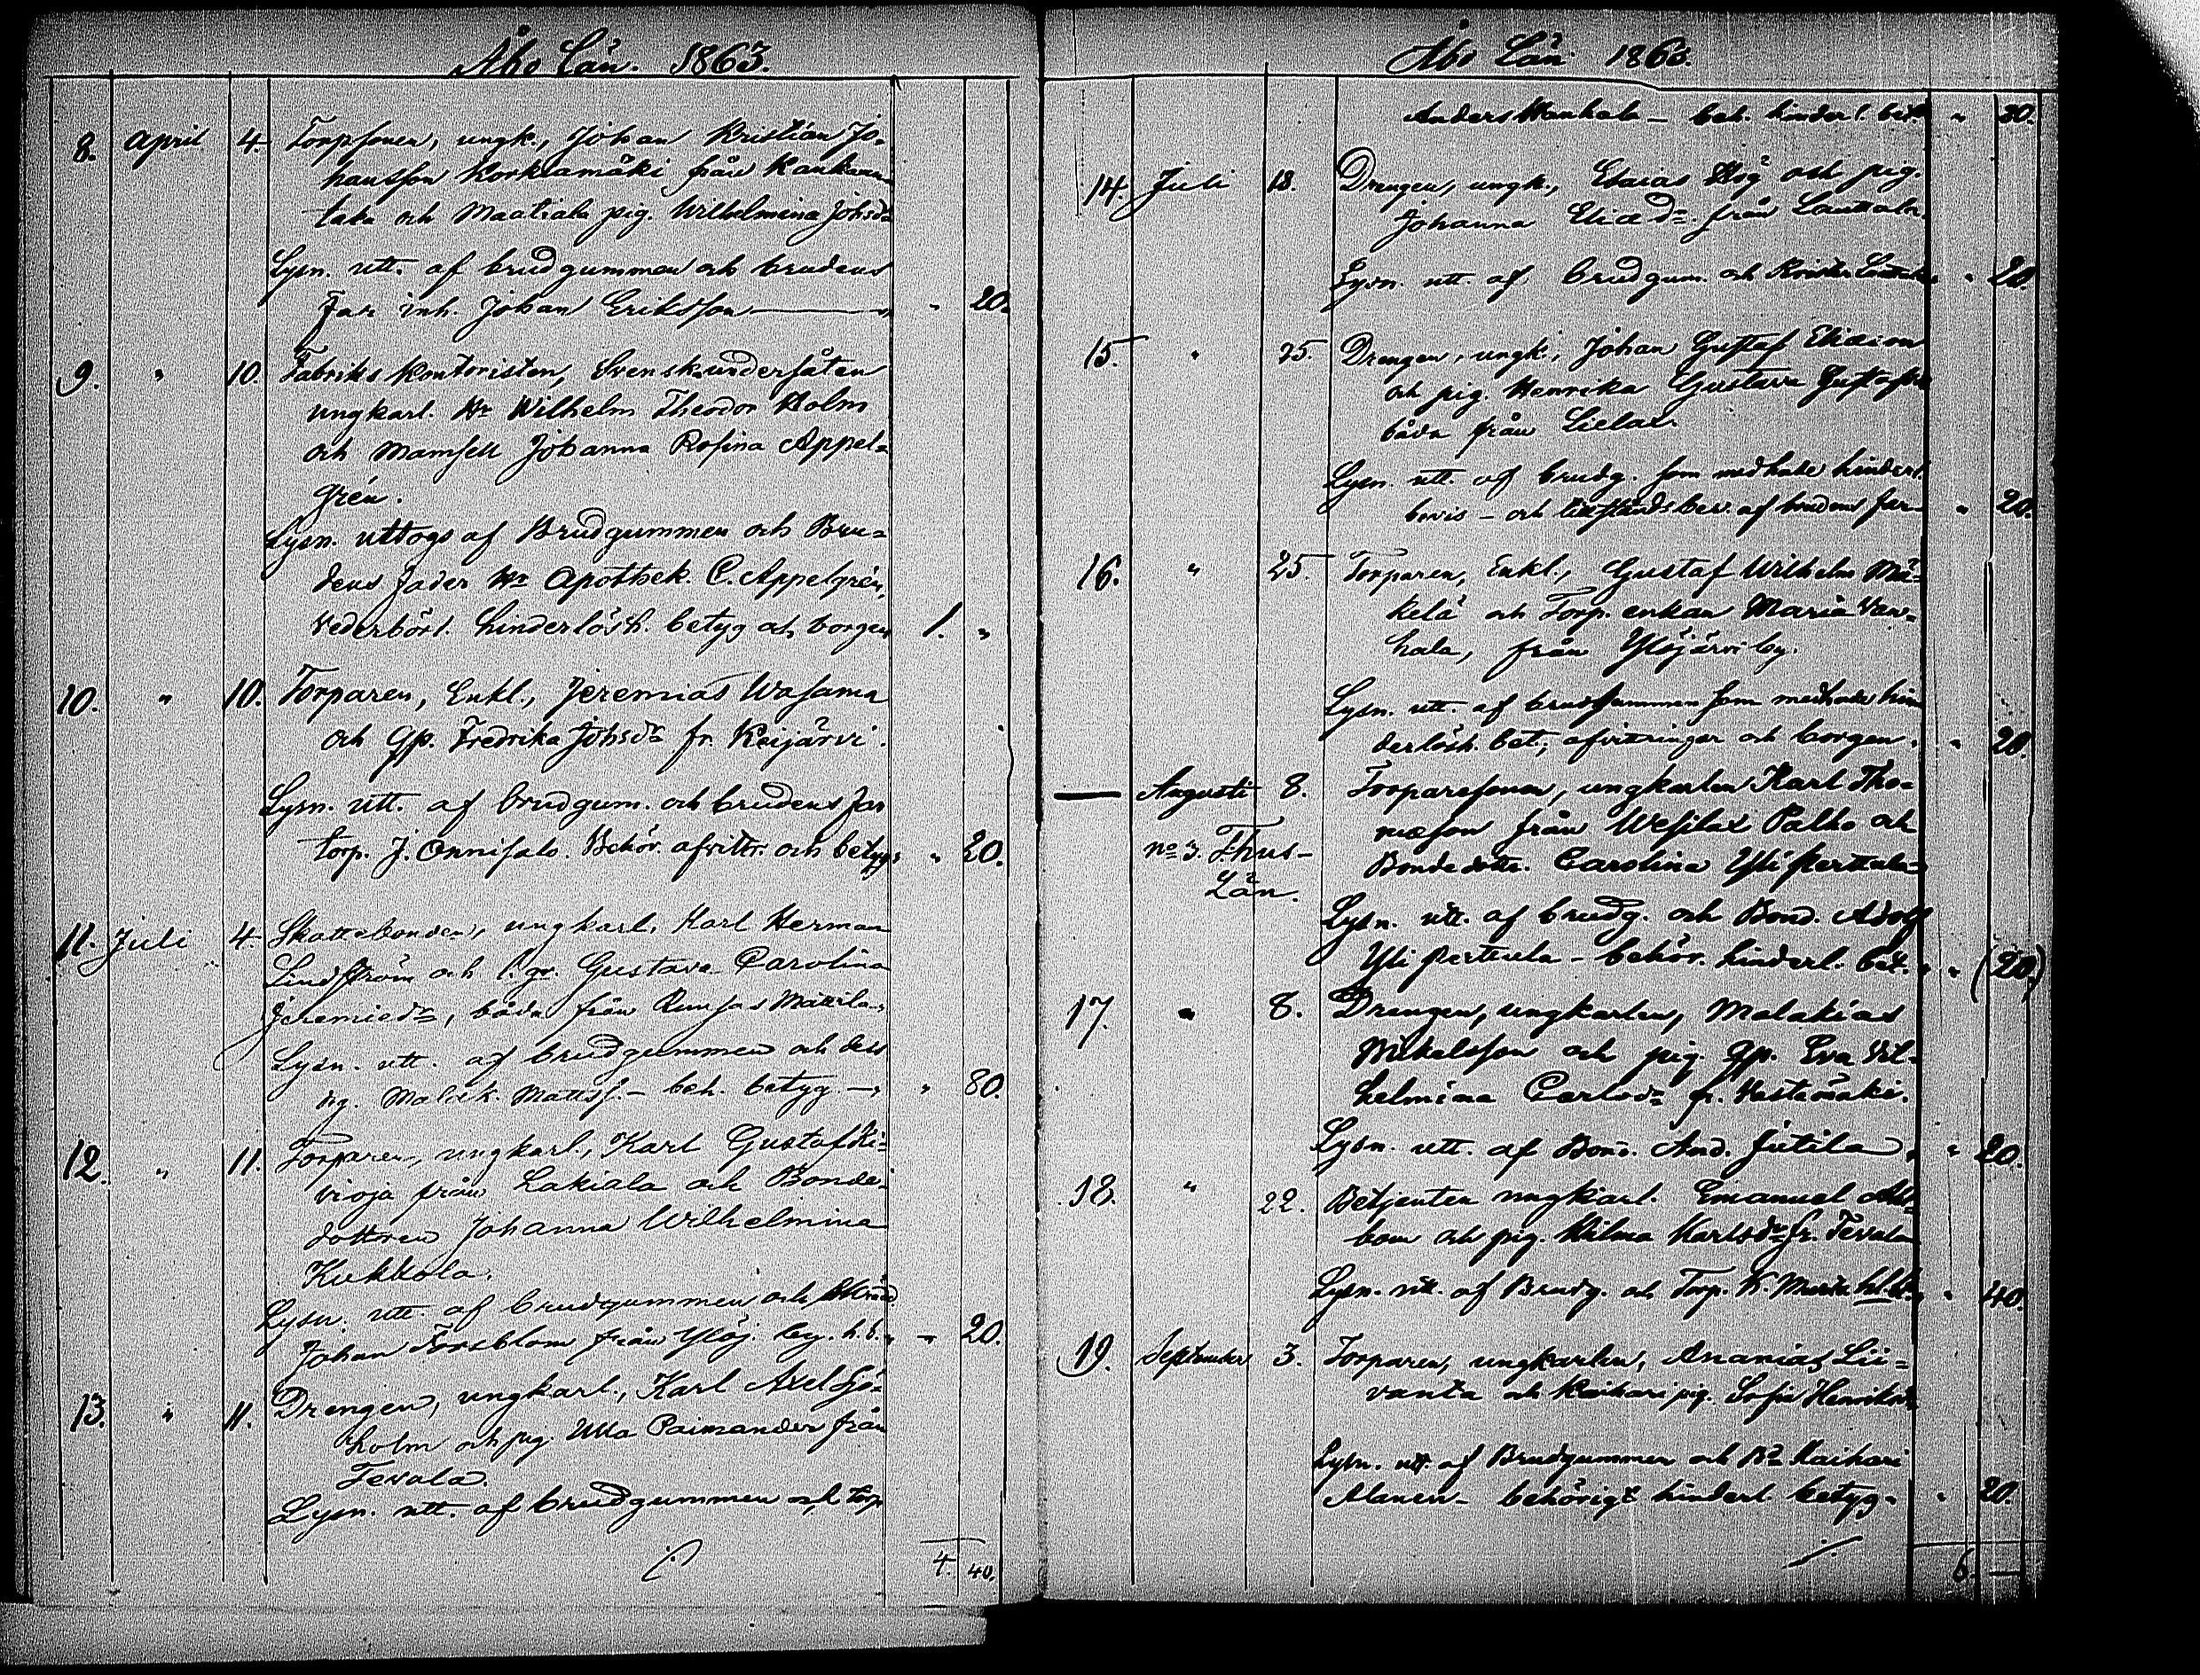 Åbo Län. 1863.
8. April 4. Torpsonen, ungk., Johan Kristian Jo-
hansson Korkiamäki från Kankaan
taka och Maatiala pig. Wilhelmina Johsdr
Lysn. utt. af brudgummen och brudens
Far inh. Johan Eriksson " 20.
9. " 10. Fabriks Kontoristen, Svensk undersåten
ungkarl. Hr Wilhelm Theodor Holm
och Mamsell Johanna Rosina Appel-
grén.
Lysn. uttogs af Brudgummen och Bru-
dens fader Hr Apothek. C. Appelgrén,
Vederbörl. hinderlösh. betyg och borgen 1. "
10. " 10. Torparen, Enkl., Jeremias Wasama
och Gp. Fredrika Johsdr fr. Keijärvi.
Lysn. utt. af brudgum. och brudens far
torp. J. Onnisalo. Behör. afvittr. och betyg " 20.
11. Juli 4. Skattebonden, ungkarl. Karl Herman
Lindström och Gustava Carolina
Jeremiedr, båda från Runsas Mattila
Lysn. utt. af brudgummen och dess
Malak. Mattss. - beh. betyg - " 80.
12. " 11. Torparen, ungkarl., Karl Gustaf Ki-
vioja från Lakiala och Bonde-
dottren Johanna Wilhelmina
Kukkola.
Lysn. utt. af brudgummen och
Johan Forsblom från Ylöj. by. h. b. " 20.
13. " 11. Drengen, ungkarl., Karl Axel Sjö-
holm och pig. Ulla Paimander från
Tevala.
Lysn. utt. af brudgummen och torp
4. 40.
Åbo Län 1863.
Anders Hankala - beh. hinderl. bet. " 20.
14. Juli 18. Drengen, ungk., Esaias Hög och pig.
Johanna Eliædr från Lauttala.
Lysn. utt. af brudgum. och " 20
15. " 25. Drengen, ungk., Johan Gustaf Eliæson
och pig. Henrika Gustava Gustafsdr
båda från Lielax.
Lysn. utt. af brudg. som medhade hinderl.
bevis - och tillståndsbev. af brudens far " 20.
16. " 25. Torparen, Enkl., Gustaf Wilhelm Mä-
kelä och Torp. enkan Maria Van-
hala, från Ylöjärvi by.
Lysn. utt. af brudgummen som medhade hin
derlösh. bet., afvittringar och borgen. " 20
— Augusti 8. Torparesonen, ungkarlen Karl Tho-
mæson från Wesilax Palho och
no 3. Thus-
Län.
Bonde dottr. Carolina Yli pertula
Lysn. utt. af brudg. och Bond. Adolf
Yli pertula - behör. hinderl. bet. " (20)
17. " 8. Drengen, ungkarlen, Malakias
Mikelsson och pig. Gp. Eva Vil-
helmina Carlsdr fr. Vastamäki.
Lysn. utt. af Bond. And. Jutila " 20.
18. " 22. Betjenten ungkarl. Emanuel Ahl-
bom och pig. Hilma Karlsdr fr. Tevala
Lysn. utt. af Brudg. och Torp. " 40.
19. September 3. Torparen, ungkarlen, Ananias Lii-
vanta och Kaihari pig. Sofia Henriksdr
Lysn. utt. af Brudgummen och Kaihari
Alanen - behörigt hinderl. betyg. " 20.
6. —